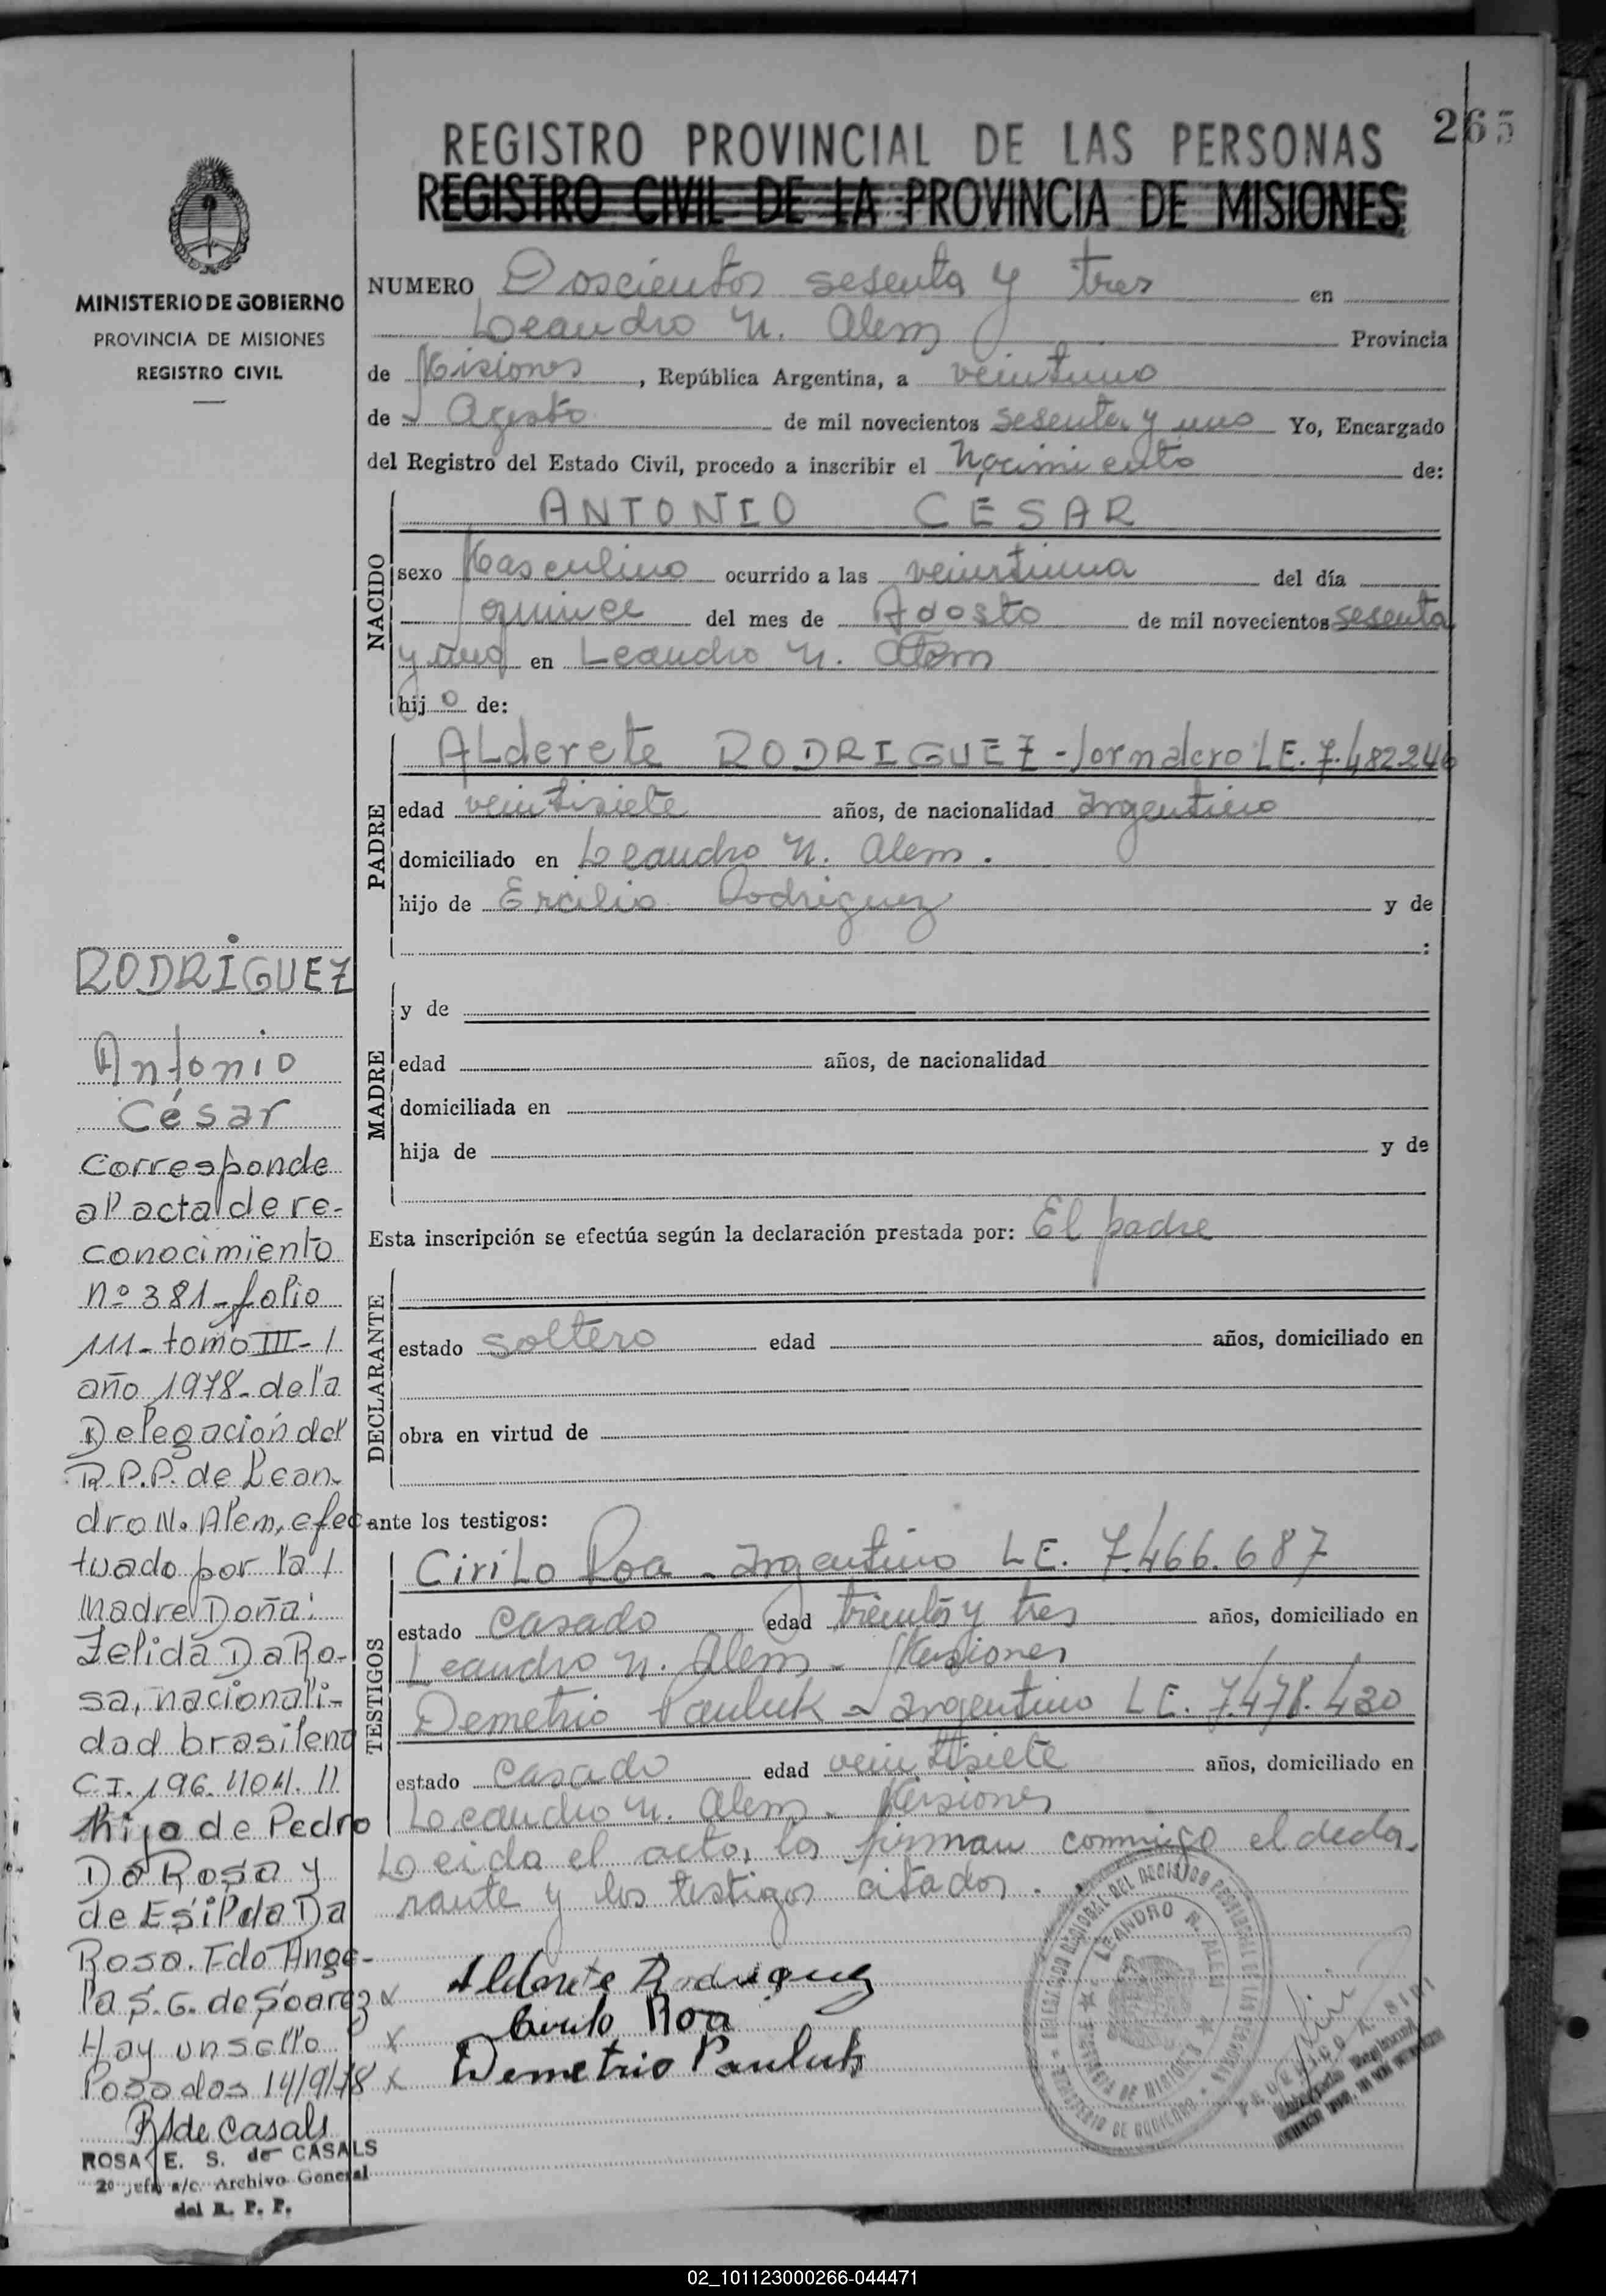 265
REGISTRO PROVINCIAL DE LAS PERSONAS
REGISTRO CIVIL DE LA PROVINCIA DE MISIONES
MINISTERIO DE GOBIERNO
PROVINCIA DE MISIONES
REGISTRO CIVIL
NUMERO Doscientos sesenta y tres en
Leandro N. Alem Provincia
de Misiones, República Argentina, a veintiuno
de Agosto de mil novecientos sesenta y uno Yo, Encargado
del Registro del Estado Civil, procedo a inscribir el Nacimiento de:
NACIDO
ANTONIO CESAR
sexo Masculino ocurrido a las veintiuna del día
quince del mes de Agosto de mil novecientos sesenta
y uno en Leandro N. Alem
hijo de:
PADRE
ALderete RODRIGUEZ - Jornalero L.E. 7.482.246
edad veintisiete años, de nacionalidad Argentino
domiciliado en Leandro N. Alem.
hijo de Ercilia Rodriguez y de
:
MADRE
y de
edad años, de nacionalidad
domiciliada en
hija de y de
Esta inscripción se efectúa según la declaración prestada por: El padre
DECLARANTE
estado soltero edad años, domiciliado en
obra en virtud de
ante los testigos:
TESTIGOS
CiriLo Roa - Argentino L.E. 7.466.687
estado casado edad treinta y tres años, domiciliado en
Leandro N. Alem - Misiones
Demetrio Pauluk - Argentino L.E. 7.478.430
estado casado edad veintisiete años, domiciliado en
Leandro N. Alem - Misiones
Leida el acta, la firman conmigo el decla-
rante y los testigos citados.
x Alderete Rodriguez
x Cirilo Roa
x Demetrio Pauluk
LEANDRO N. ALEM
PROVINCIA DE MISIONES
MINISTERIO DE GOBIERNO
Delegado Regional
RODRIGUEZ
Antonio
César
Corresponde
al acta de re-
conocimiento
nº 381 - folio
111 - tomo III - /
año 1978 - de la
Delegación del
R.P.P. de Lean-
dro N. Alem, efec
tuado por la /
madre Doña:
Zelida Da Ro-
sa, nacionali-
dad brasilena
C.I. 196.404. //
hija de Pedro
Da Rosa y
de Esilda Da
Rosa. Fdo Ange-
la S. G. de Soarez
Hay un sello
Posadas 14/9/78
RSde Casals
ROSA E. S. de CASALS
2º jefe a/c. Archivo General
del R. P. P.
02_101123000266-044471